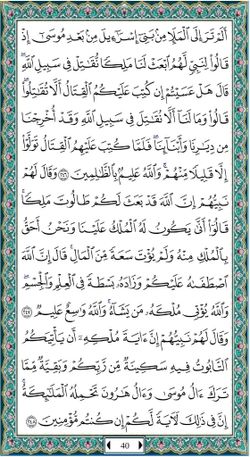 أَلَمْ تَرَ إِلَى ٱلْمَلَإِ مِنۢ بَنِىٓ إِسْرَٰٓءِيلَ مِنۢ بَعْدِ مُوسَىٰٓ إِذْ
قَالُوا۟ لِنَبِىٍّ لَّهُمُ ٱبْعَثْ لَنَا مَلِكًا نُّقَٰتِلْ فِى سَبِيلِ ٱللَّهِ ۖ
قَالَ هَلْ عَسَيْتُمْ إِن كُتِبَ عَلَيْكُمُ ٱلْقِتَالُ أَلَّا تُقَٰتِلُوا۟ ۖ
قَالُوا۟ وَمَا لَنَآ أَلَّا نُقَٰتِلَ فِى سَبِيلِ ٱللَّهِ وَقَدْ أُخْرِجْنَا
مِن دِيَٰرِنَا وَأَبْنَآئِنَا ۖ فَلَمَّا كُتِبَ عَلَيْهِمُ ٱلْقِتَالُ تَوَلَّوْا۟
إِلَّا قَلِيلًا مِّنْهُمْ ۗ وَٱللَّهُ عَلِيمٌۢ بِٱلظَّٰلِمِينَ ٢٤٦ وَقَالَ لَهُمْ
نَبِيُّهُمْ إِنَّ ٱللَّهَ قَدْ بَعَثَ لَكُمْ طَالُوتَ مَلِكًا ۚ
قَالُوٓا۟ أَنَّىٰ يَكُونُ لَهُ ٱلْمُلْكُ عَلَيْنَا وَنَحْنُ أَحَقُّ
بِٱلْمُلْكِ مِنْهُ وَلَمْ يُؤْتَ سَعَةً مِّنَ ٱلْمَالِ ۚ قَالَ إِنَّ ٱللَّهَ
ٱصْطَفَىٰهُ عَلَيْكُمْ وَزَادَهُۥ بَسْطَةً فِى ٱلْعِلْمِ وَٱلْجِسْمِ ۖ
وَٱللَّهُ يُؤْتِى مُلْكَهُۥ مَن يَشَآءُ ۚ وَٱللَّهُ وَٰسِعٌ عَلِيمٌ ٢٤٧
وَقَالَ لَهُمْ نَبِيُّهُمْ إِنَّ ءَايَةَ مُلْكِهِۦٓ أَن يَأْتِيَكُمُ
ٱلتَّابُوتُ فِيهِ سَكِينَةٌ مِّن رَّبِّكُمْ وَبَقِيَّةٌ مِّمَّا
تَرَكَ ءَالُ مُوسَىٰ وَءَالُ هَٰرُونَ تَحْمِلُهُ ٱلْمَلَٰٓئِكَةُ ۚ
إِنَّ فِى ذَٰلِكَ لَءَايَةً لَّكُمْ إِن كُنتُم مُّؤْمِنِينَ ٢٤٨
40